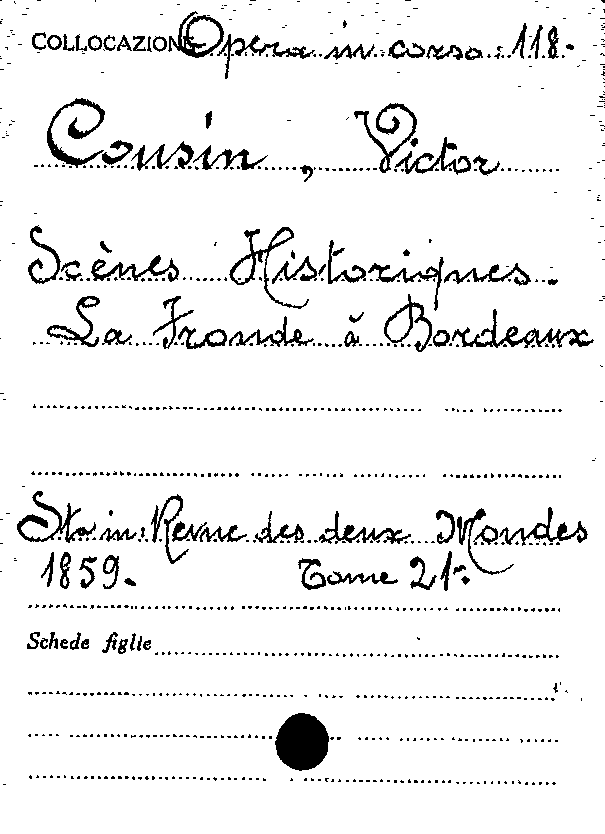 COLLOCAZIONE Opera in corso. 118.
Cousin, Victor
Scènes Historiques.
La Fronde à Bordeaux
Sta in: Revue des deux Mondes
1859. Tome 21º.
Schede figlie